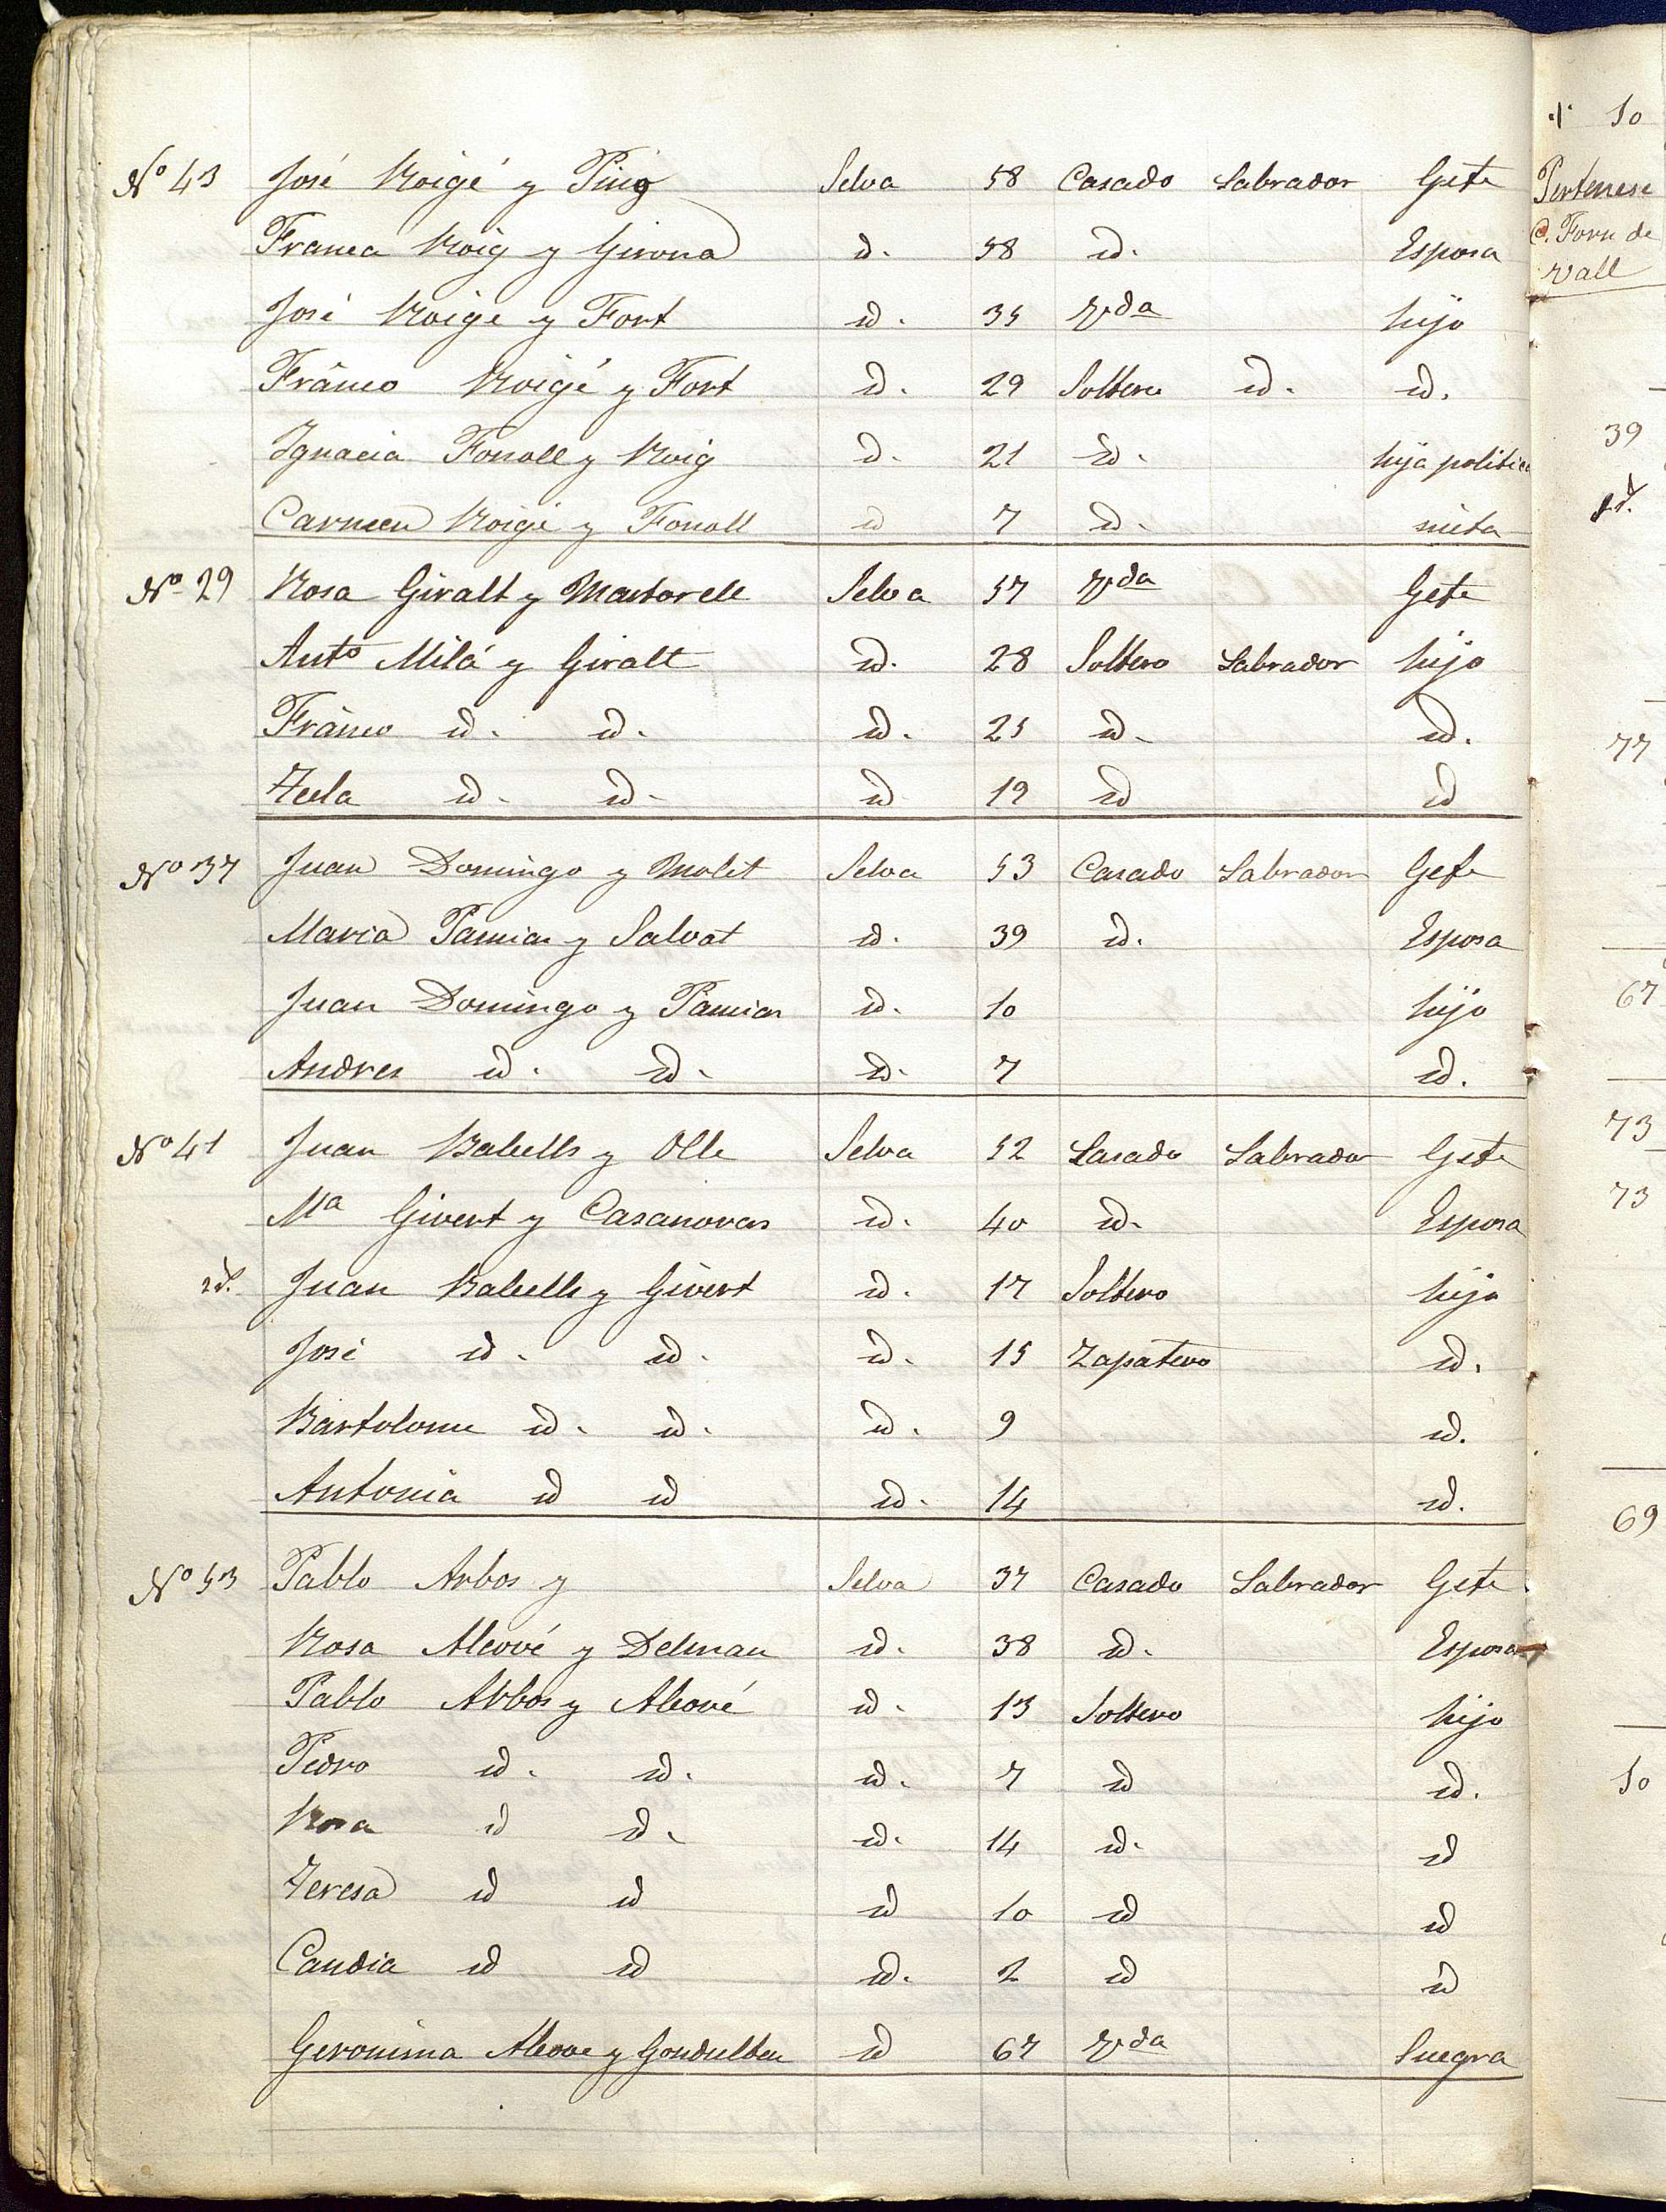 Nº 43 José Roigé y Puig Selva 58 Casado Labrador Gefe
Franca Roig y Girona id. 58 id. Esposa
José Roige y Fort id. 35 Vda hijo
Franco Roigé y Fort id. 29 Soltero id. id.
Ignacia Fonoll y Roig id. 21 id. hija politica
Carmen Roigé y Fonoll id 7 id. nieta
Nº 29 Rosa Giralt y Martorell Selva 57 Vda Gefe
Antº Milá y Giralt id. 28 Soltero Labrador hijo
Franco id. id. id. 25 id. id.
Tecla id. id. id 19 id id
Nº 37 Juan Domingo y Molet Selva 53 Casado Labrador Gefe
Maria Pamias y Salvat id. 39 id. Esposa
Juan Domingo y Pamias id. 10 hijo
Andres id. id. id. 7 id.
Nº 41 Juan Babells y Olle Selva 52 Casado Labrador Gefe
Mª Givert y Casanovas id. 40 id. Esposa
id. Juan Babells y Givert id. 17 Soltero hijo
José id. id. id. 15 Zapatero id.
Bartolome id. id. id. 9 id.
Antonia id id id. 14 id.
Nº 53 Pablo Arbos y Selva 37 Casado Labrador Gefe
Rosa Alcové y Delmau id. 38 id. Esposa
Pablo Arbos y Alcové id. 13 Soltero hijo
Pedro id. id. id. 7 id id.
Rosa id id. id. 14 id. id
Teresa id id id 10 id id
Candia id id id. 2 id id
Geronima Alcove y id 67 Vda Suegra
50
Pertenese
C. Forn de
Vall
39
id.
77
67
73
73
69
50